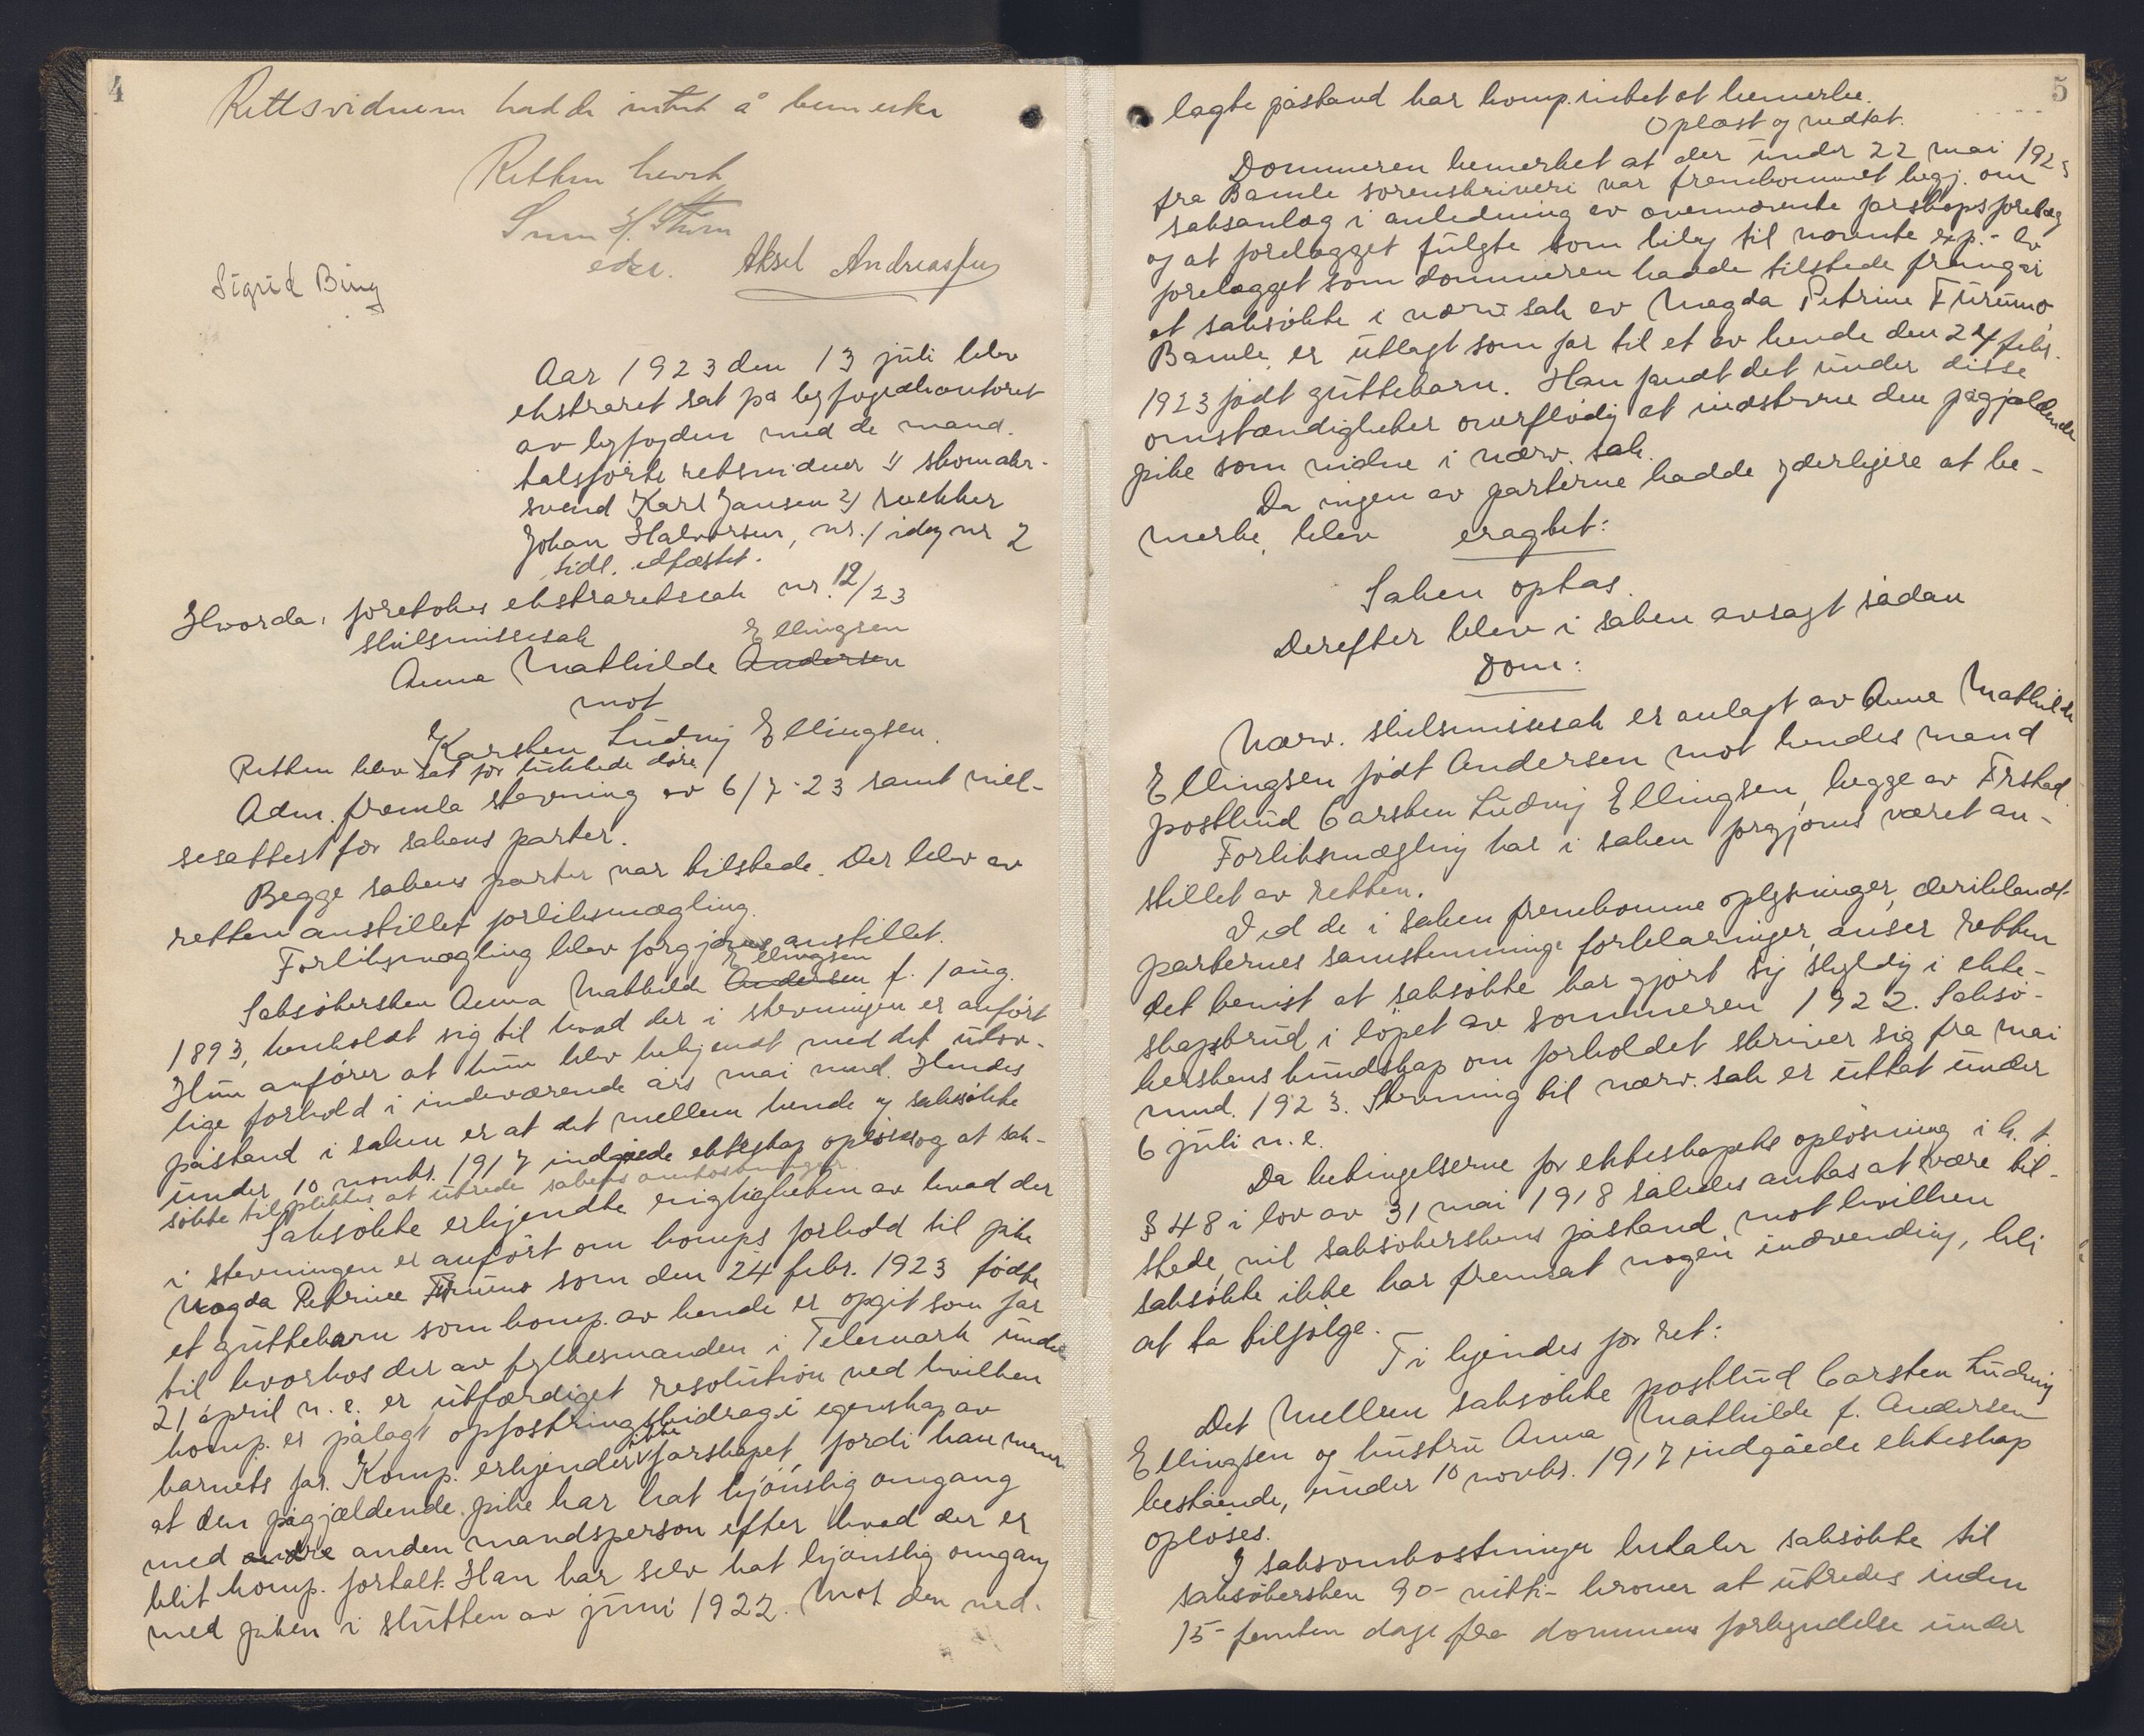 4
Rettsvidnem hadde intet å bemerke
Retten hevet
Aksel Andreassen
Sigrid Bing
Aar 1923 den 13 juli blev
ekstraret sat på byfogedkontoret
av byfogden med de mand.
talsførte retsvidner 1/ skomaker-
svend Karl Jansen 2/ snekker
Johan Halvorsen, nr. 1 idag nr 2
tidl. edfæstet.
Hvorda: foretokes ekstraretssak nr. 12/23
skilsmissesak
Ellingsen
Anna Mathilde Andersen
mot
Karsten Ludvig Ellingsen.
Retten blev sat for lukkede døre
Adm. fremla stevning av 6/7-23 samt viel-
sesattest for sakens parter.
Begge sakens parter var tilstede. Der blev av
retten anstillet forliksmægling.
Forliksmægling blev forgjæves anstillet.
Ellingsen
Saksøkersken Anna Mathilde Andersen f. 1 aug.
1893, henholdt sig til hvad der i stevningen er anført
Hun anfører at hun blev bekjendt med det utro-
lige forhold i indeværende års mai mnd. Hendes
påstand i saken er at det mellem hende og saksøkte
under 10 novbr. 1917 indgåede ekteskap opløses og at sak-
søkte tilpliktes at utrede sakens omkostninger.
Saksøkte erkjendte rigtigheten av hvad der
i stevningen er anført om komps forhold til pike
Magda Petrine Furumo som den 24 febr. 1923 fødte
et guttebarn som komp. av hende er opgit som far
til hvorhos der av fylkesmanden i Telemark under
21 april n. e. er utfærdiget resolution ved hvilken
komp. er pålagt opfostringsbidrag i egenskap av
barnets far. Komp. erkjender ikke farskapet, fordi han mener
at den pågjældende pike har hat kjønslig omgang
med andre anden mandsperson efter hvad der er
blit komp. fortalt. Han har selv hat kjønslig omgang
med piken i slutten av juni 1922. Mot den ned-
5
lagte påstand har komp. intet at bemerke.
Oplæst og vedtat.
Dommeren bemerket at der under 22 mai 1923
fra Bamle sorenskriveri var fremkommet begj. om
saksanlæg i anledning av ovennævnte farskapsforelæg
og at forelægget fulgte som bilag til nævnte exp. - Av
forelægget som dommeren hadde tilstede fremgår
at saksøkte i nærv. sak av Magda Petrine Furumo,
Bamle, er utlagt som far til et av hende den 24 febr.
1923 født guttebarn. Han fandt det under disse
omstændigheter overflødig at indstevne den pågjældende
pike som vidne i nærv. sak.
Da ingen av parterne hadde yderligere at be-
merke, blev eragtet:
Saken optas.
Derefter blev i saken avsagt sådan
Dom:
Nærv. skilsmissesak er anlagt av Anna Mathilde
Ellingsen født Andersen mot hendes mand
postbud Carsten Ludvig Ellingsen, begge av Krstad.
Forliksmægling har i saken forgjæves været an-
stillet av retten.
Ved de i saken fremkomne oplysninger, deriblandt
parternes samstemmige forklaringer, anser retten
det bevist at saksøkte har gjort sig skyldig i ekte-
skapsbrud i løpet av sommeren 1922. Saksø-
kerskens kundskap om forholdet skriver sig fra mai
mnd. 1923. Stevning til nærv. sak er uttat under
6 juli n. e.
Da betingelserne for ekteskapets opløsning i h. t.
§ 48 i lov av 31 mai 1918 således antas at være til-
stede, vil saksøkerskens påstand, mot hvilken
saksøkte ikke har fremsat nogen indvending, bli
at ta tilfølge.
Ti kjendes for ret:
Det mellem saksøkte postbud Carsten Ludvig
Ellingsen og hustru Anna Mathilde f. Andersen
bestående, under 10 novbr. 1917 indgåede ekteskap
opløses.
I saksomkostninger betaler saksøkte til
saksøkersken 90- nitti- kroner at utredes inden
15- femten dage fra dommens forkyndelse under